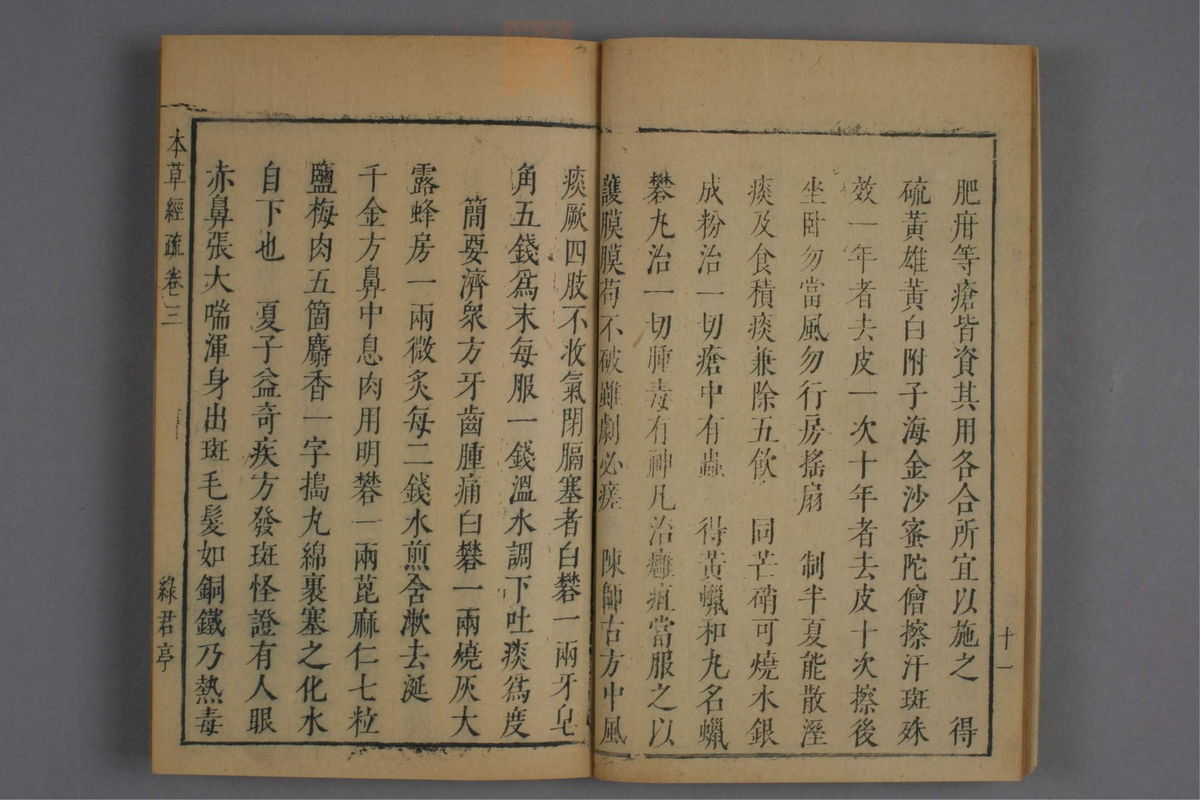 十一
肥疳等瘡皆資其用各合所宜以施之 得
硫黃雄黃白附子海金沙蜜陀僧擦汗斑殊
效一年者去皮一次十年者去皮十次擦後
坐卧勿當風勿行房搖扇 制半夏能散溼
痰及食積痰兼除五飲 同芒硝可燒水銀
成粉治一切瘡中有蟲 得黃蠟和丸名蠟
礬丸治一切腫毒有神凡治癰疽當服之以
護膜膜苟不破雖劇必瘥 陳師古方中風
痰厥四肢不收氣閉膈塞者白礬一兩牙皂
角五錢爲末每服一錢溫水調下吐痰爲度
簡要濟衆方牙齒腫痛白礬一兩燒灰大
露蜂房一兩微炙每二錢水煎含漱去涎
千金方鼻中息肉用明礬一兩蓖麻仁七粒
鹽梅肉五箇麝香一字搗丸綿裹塞之化水
自下也 夏子益奇疾方發斑怪證有人眼
赤鼻張大喘渾身出斑毛髮如銅鐵乃熱毒
本草經疏 卷三
綠君亭